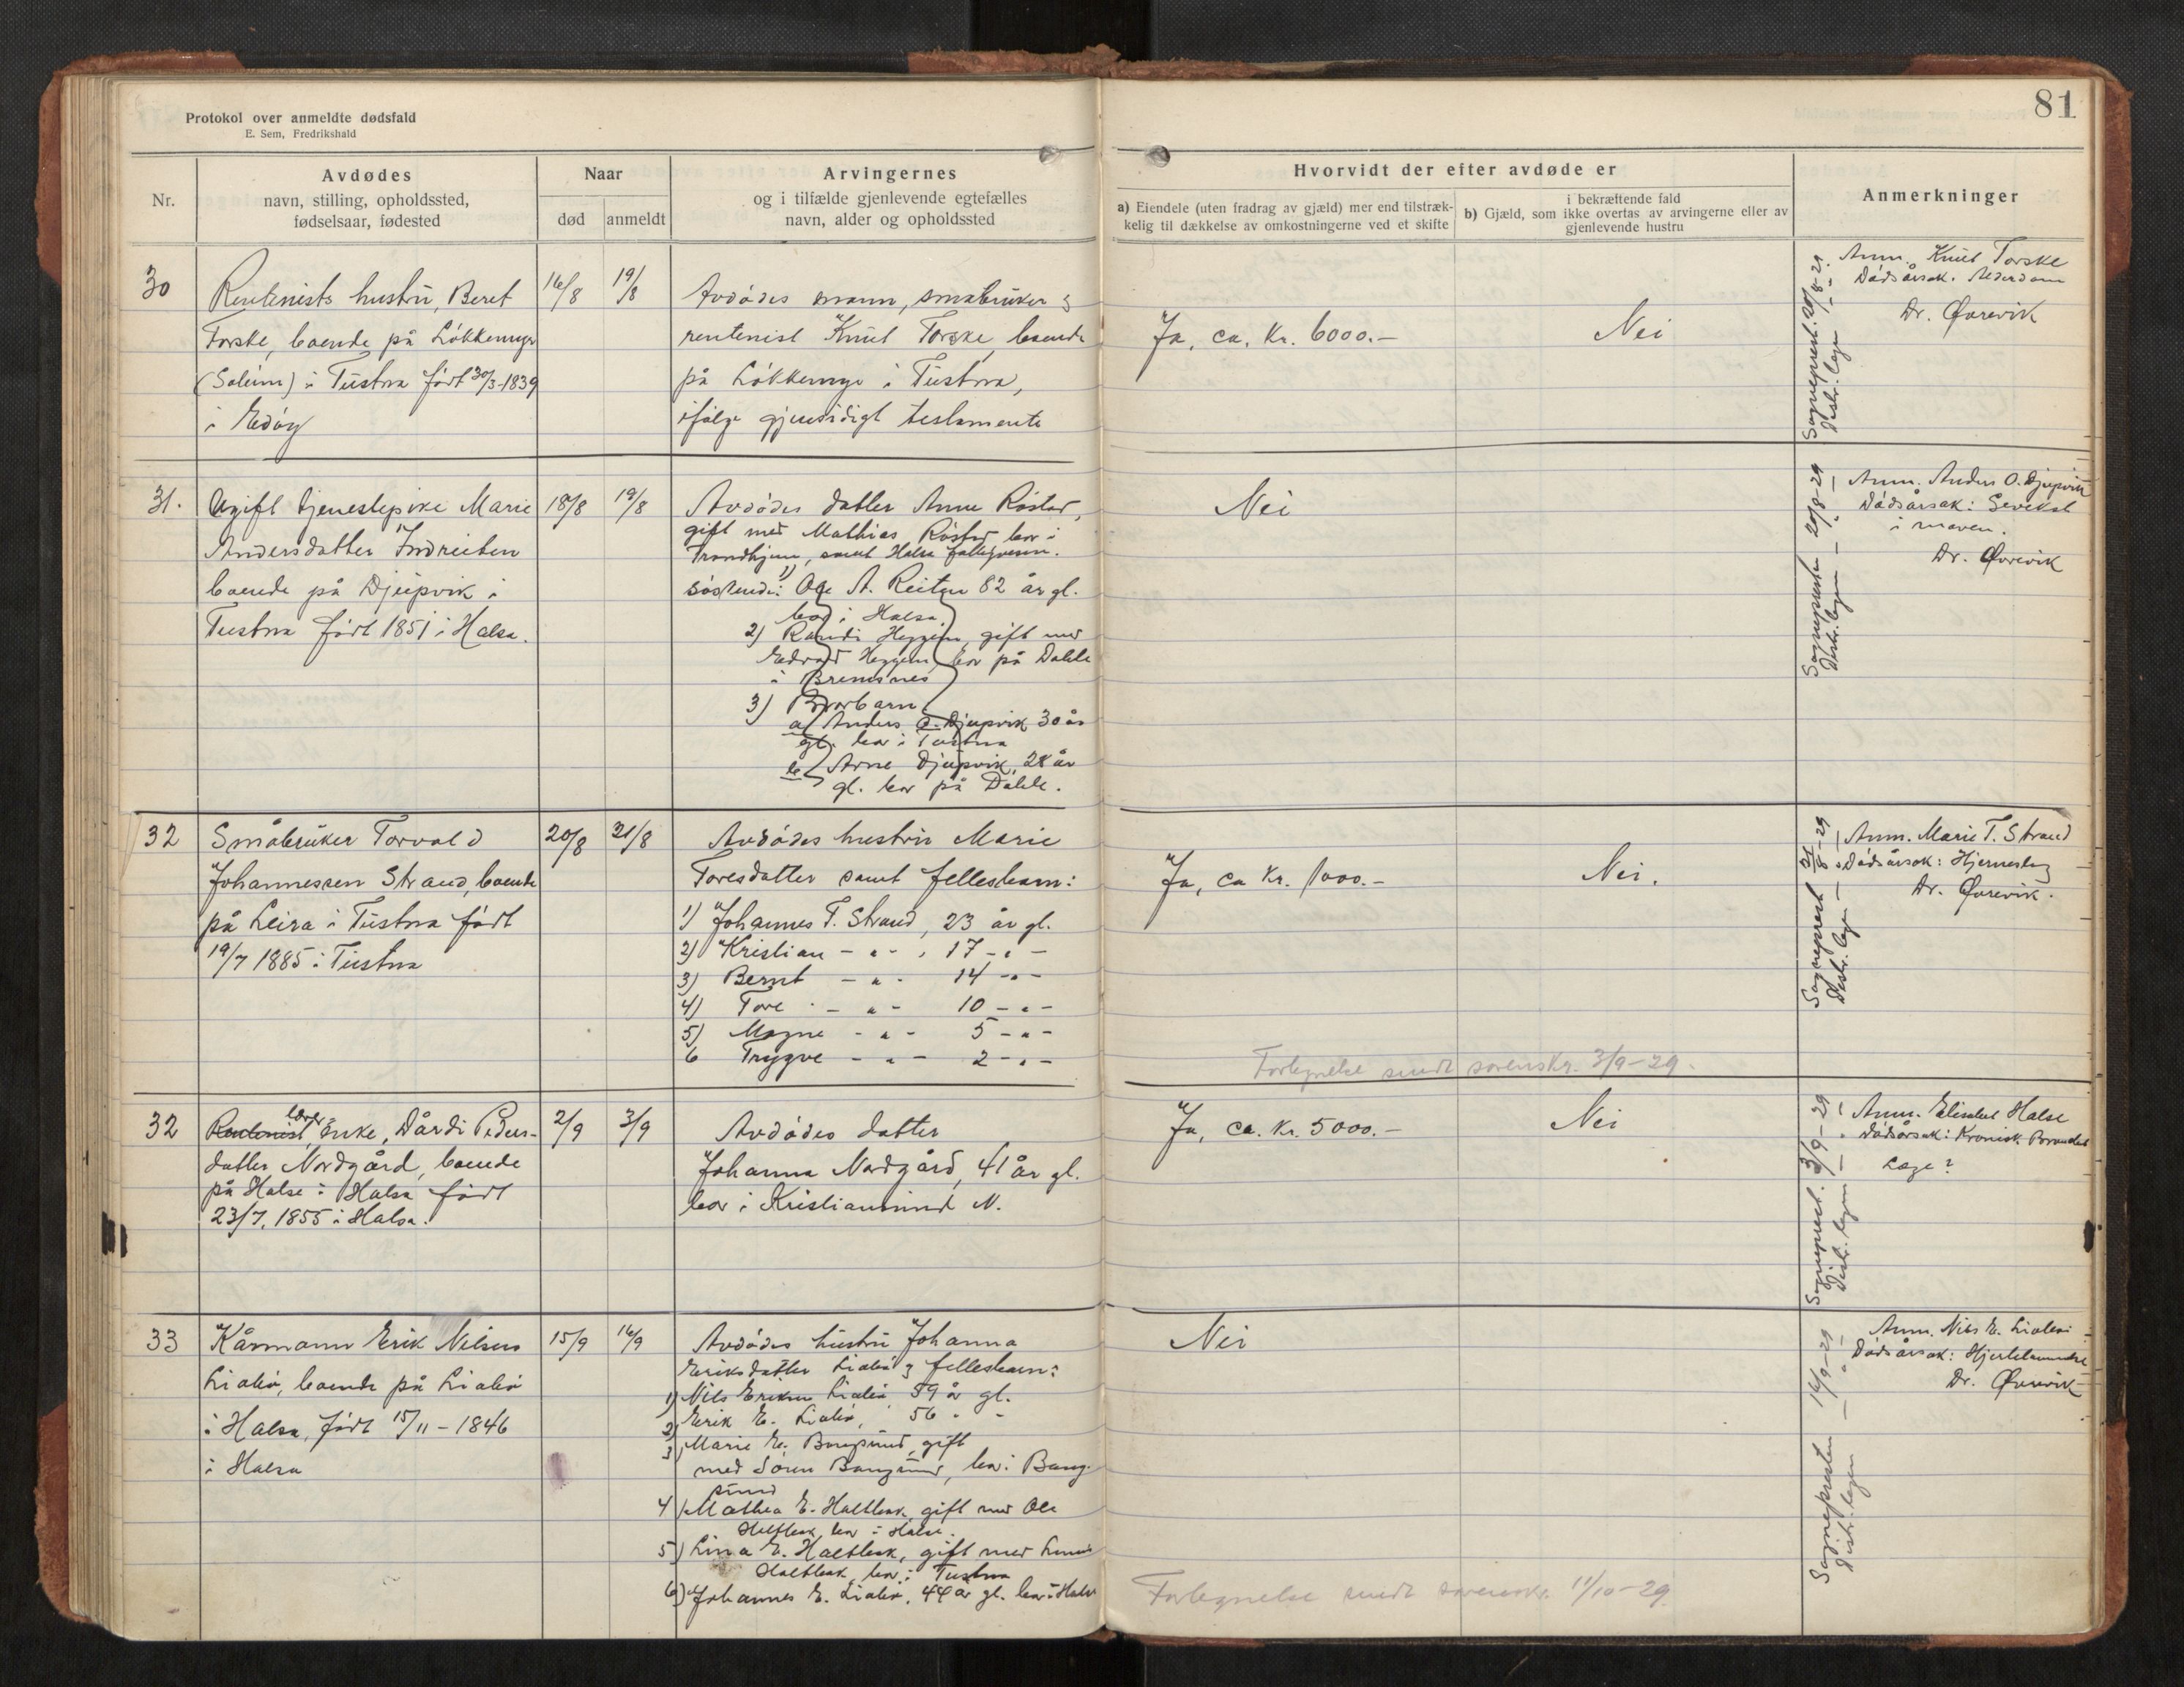 Protokol over anmeldte dødsfald
E. Sem, Fredrikshald
81
Nr.
Avdødes
navn, stilling, opholdssted,
fødselsaar, fødested
Naar
død
anmeldt
Arvingernes
og i tilfælde gjenlevende egtefælles
navn, alder og opholdssted
Hvorvidt der efter avdøde er
a) Eiendele (uten fradrag av gjæld) mer end tilstræk-
kelig til dækkelse av omkostningerne ved et skifte
i bekræftende fald
b) Gjæld, som ikke overtas av arvingerne eller av
gjenlevende hustru
Anmerkninger
30
Rentenists hustru, Beret
Torske, boende på Løkkemyr
(Soleim) i Tustna født 30/3-1839
i Edøy
16/8
19/8
Avdødes mann, småbruker og
rentenist Knut Torske, boende
på Løkkemyr i Tustna,
ifølge gjensidigt testamente
Ja, ca. kr. 6000.-
Nei
Sogneprest. 20/8-29.
Distr. lege - " -
Anm. Knut Torske
Dødsårsak. Alderdom
Dr. Øvrevik
31.
Ugift tjenestepike Marie
Andersdatter Indreiten
boende på Djupvik i
Tustna født 1851 i Halsa.
18/8
19/8
Avdødes datter Anne Røstad,
gift med Mathias Røstad, bor i
Trondhjem, samt
søskende: 1) Ole A. Reiten 82 år gl.
bor i Halsa.
2) Randi Heggem, gift med
Edvard Heggem, bor på Dahle
i Bremsnes
3) Brorbarn
a) Anders O. Djupvik 30 år
gl. bor i Tustna
b) Arne Djupvik, 28 år
gl. bor på Dahle.
Nei
Sognepresten 20/8-29
Distr. legen - " -
Anm. Anders O. Djupvik
Dødsårsak: Svekst
i maven.
Dr. Øvrevik
32
Småbruker Torvald
Johannessen Strand, boende
på Leira i Tustna født
19/7 1885 i Tustna
20/8
21/8
Avdødes hustru Marie
Toresdatter samt fellesbarn:
1) Johannes T. Strand, 23 år gl.
2) Kristian - " - , 17 - " -
3) Bernt - " - 14 - " -
4) Tore - " - 10 - " -
5) Magne - " - 5 - " -
6 Trygve - " - 2 - " -
Ja, ca kr. 1000.-
Nei.
Fortegnelse sendt sorenskr. 3/9-29.
Sogneprest 21/8-29
Distr. lege - " -
Anm. Marie T. Strand
Dødsårsak: Hjerneslag
Dr. Øvrevik.
32
Rentenist, lærer Enke, Dårdi Peders-
datter Nordgård, boende
på Halse i Halsa født
23/7, 1855 i Halsa.
2/9
3/9
Avdødes datter
Johanna Nordgård, 41 år gl.
bor i Kristiansund N.
Ja, ca. kr. 5000.-
Nei
Sogneprest. 3/9-29
Distr. legen - " -
Anm. Elisabet Halse
Dødsårsak: Kronisk
Læge?
33
Kårmann Erik Nilsen
Liabø, boende på Liabø
i Halsa, født 15/11-1846
i Halsa
15/9
16/9
Avdødes hustru Johanna
Eriksdatter Liabø og fellesbarn:
1) Nils Eriksen Liabø, 59 år gl.
2) Erik E. Liabø, 56 " -
3) Marie E. Bangsund, gift
med Søren Bangsund, bor i Bang-
sund
4) Mathea E. Haltbak, gift med Ole
Haltbak, bor i Halsa.
5) Lina E. Haltbak, gift med
Haltbak, bor i Tustna
6) Johannes E. Liabø, 44 år gl. bor i Halsa
Nei
Fortegnelse sendt sorenskr. 11/10-29.
Sognepresten - 16/9-29
Distr. legen - " -
Anm. Nils E. Liabø
Dødsårsak: Hjertelammelse
Dr. Øvrevik